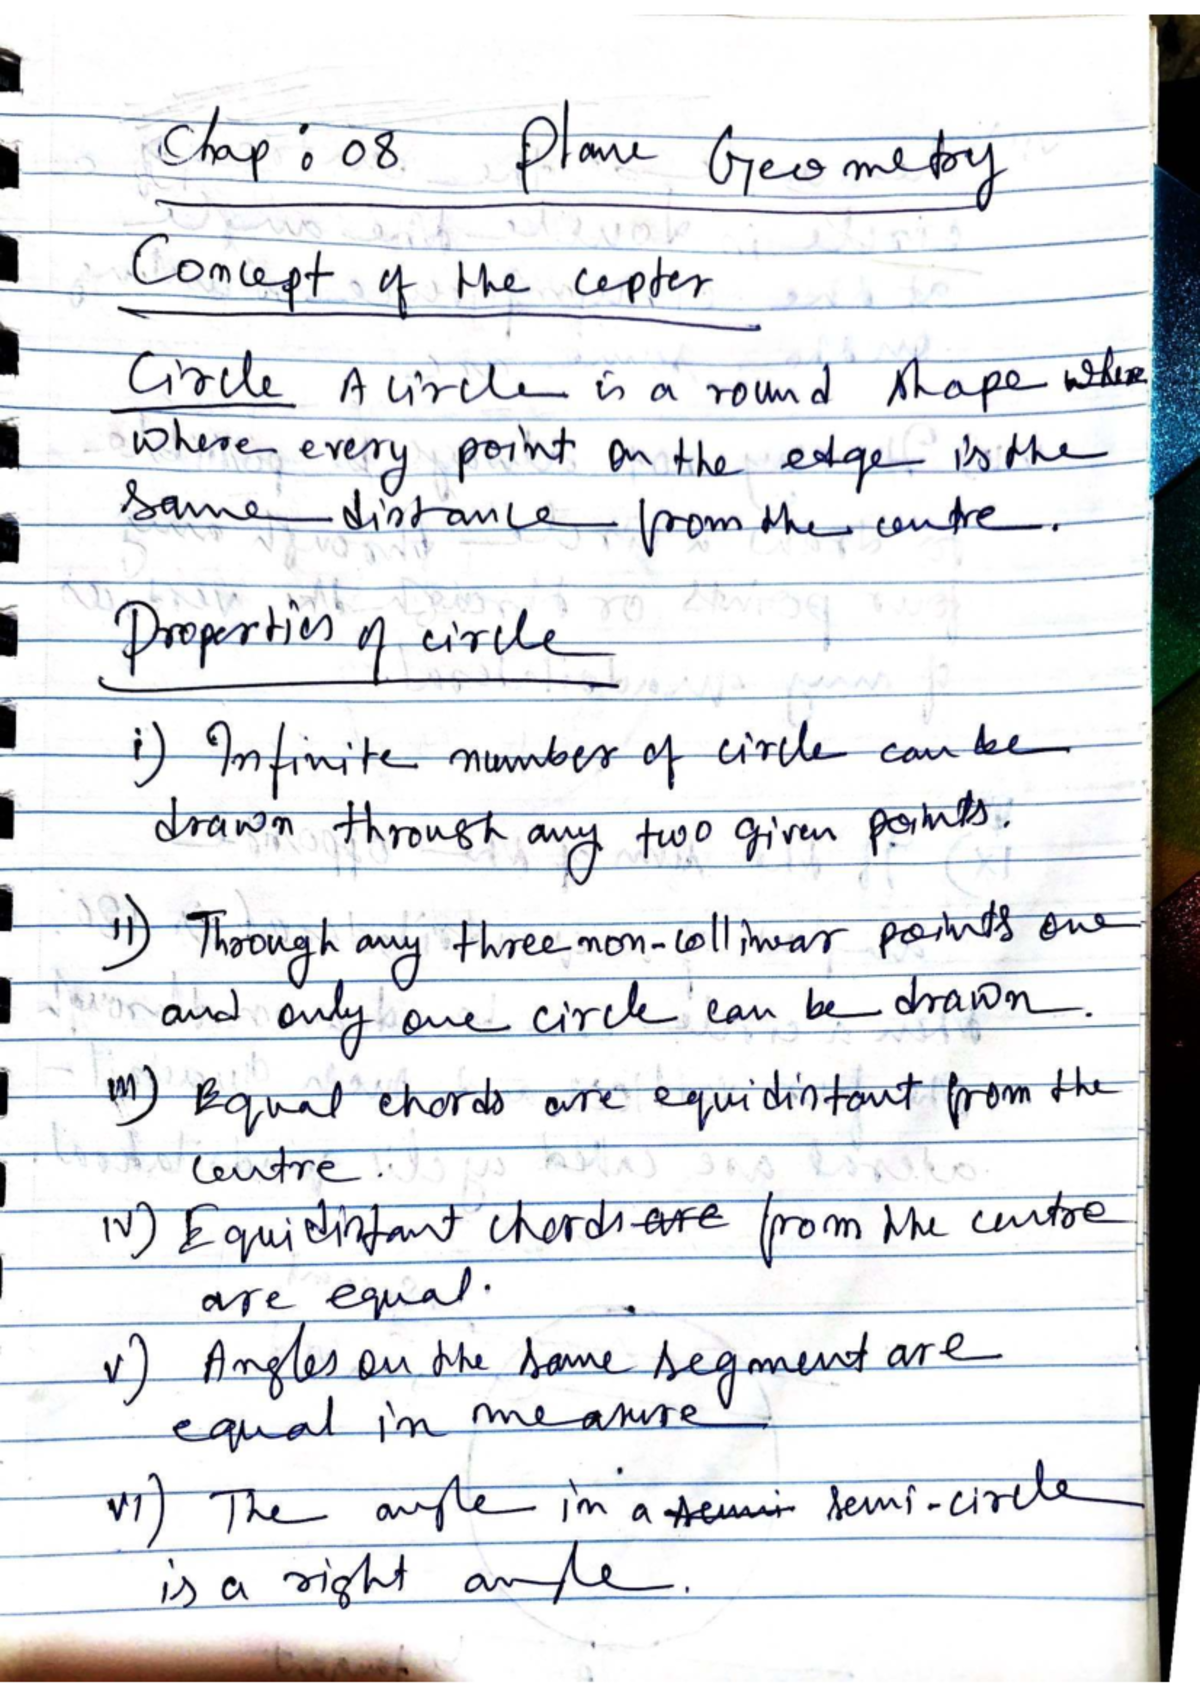 Chap: 08 Plane Geometry
Concept of the cepter
Circle A circle is a round shape where
where every point on the edge is the
same distance from the centre.
Properties of circle
i) Infinite number of circle can be
drawn through any two given points.
ii) Through any three non-collinear points one
and only one circle can be drawn.
iii) Equal chords are equidistant from the
centre.
iv) Equidistant chords are from the centre
are equal.
v) Angles on the same segment are
equal in measure
vi) The angle in a semi semi-circle
is a right angle.